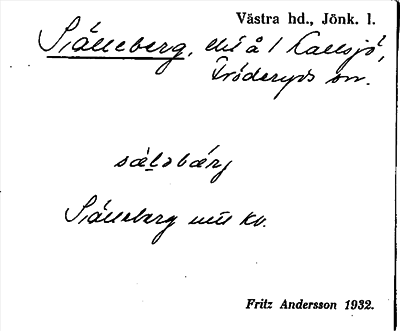 Västra hd., Jönk. l.
Siälleberg, å 1 Kallsjö,
Fröderyds sn.
sä̀lsbærj
Siälleberg kv.
Fritz Andersson 1932.